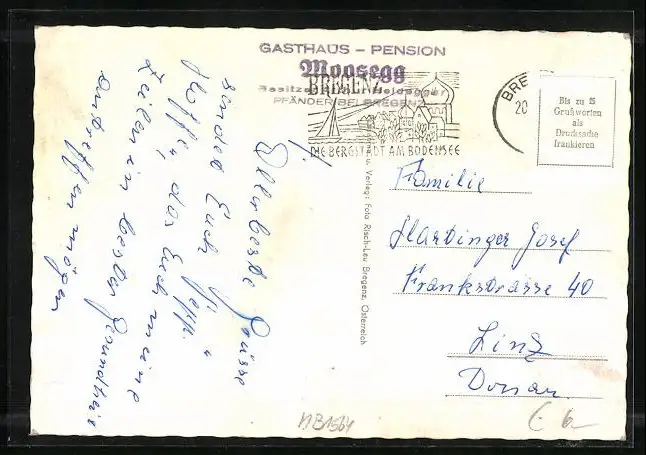 GASTHAUS - PENSION
Moosegg
BREGENZ
Besitzer Heidegger
PFÄNDER BEI BREGENZ
DIE BERGSTADT AM BODENSEE
BRE
20
Bis zu 5
Grußworten
als
Drucksache
frankieren
Allerbeste Grüsse
sendet Euch Sepp.
Hoffe, das Euch meine
Zeilen in bester Gesundheit
antreffen mögen
u. Verlag: Foto Risch-Lau Bregenz, Österreich
Familie
Hartinger Josef
Frankstrasse 40
Linz
Donau.
MB1564
6-